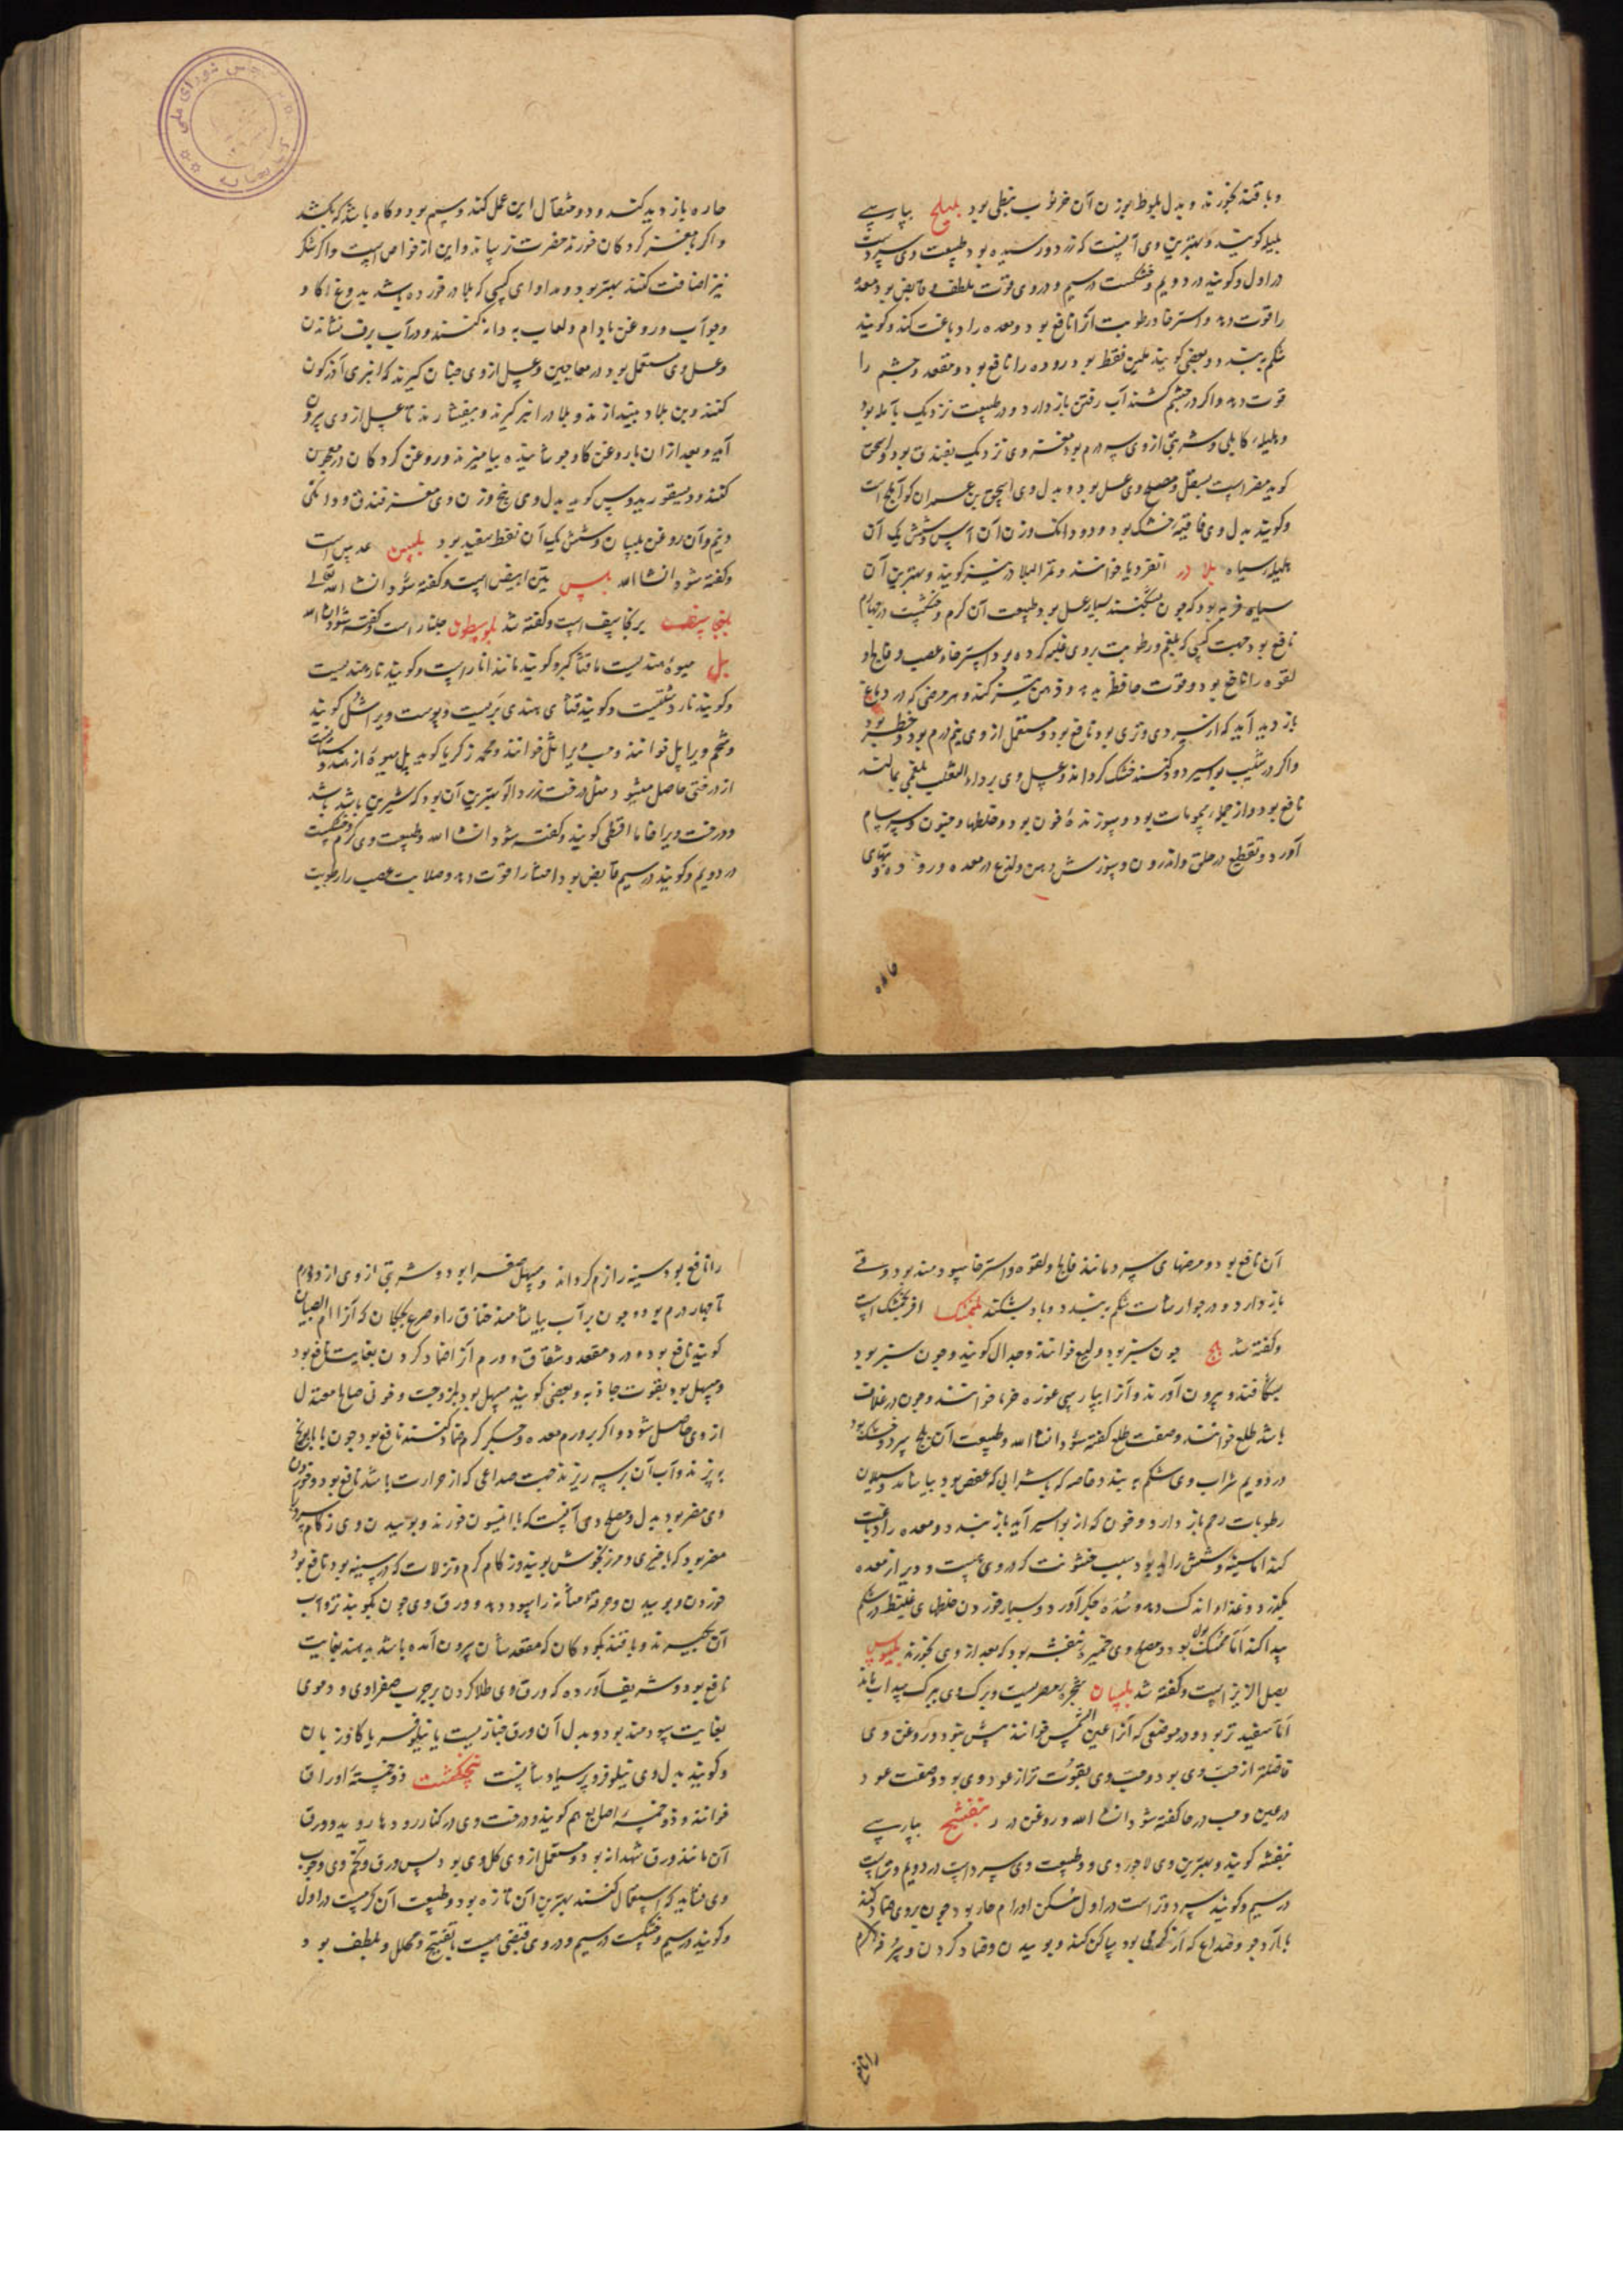 و با قند بخورند و بدل بلوط بوزن آن خرنوب نبطی بود بلیلج بپارسی
بلیله کویند و بهترین وی آنست که زرد و رسیده بود و طبیعت وی سردست
در اول و کویند در دویم و خشکست در سیم و در وی قوت ملطف و قابض بود معده
را قوت دهد و استرخا و رطوبت آنرا نافع بود و معده را دباغت کند و کویند
شکم ببندد و بعضی کویند ملین فقط بود روده را نافع بود و مقعد و چشم را
قوت دهد و اکر در چشم کشند آب رفتن باز دارد و در طبیعت نزدیک بآمله بود
و هلیله کابلی و شربتی از وی سه درم بود مغز وی نزدیک بفندق بود و اسحق
کوید مضر است بسفل و مصلح وی عسل بود و بدل وی اسحق بن عمران کوید آملج است
و کویند بدل وی فاقیه خشک بود و دو دانک وزن آن آس و شش یک آن
هلیله سیاه بلادر انقردیا خوانند و ثمر البلادر نیز کویند و بهترین آن
سیاه فربه بود که چون بشکنند بسیار عسل بود و طبیعت آن کرم و خشکست در چهارم
نافع بود جهت کسی که بلغم و رطوبت بر وی غلبه کرده بود و استرخاء عصب و فالج و
لقوه را نافع بود و قوت حافظه بدهد و ذهن تیز کند و هر مرضی که در دماغ
باز دید آید که از سردی و تری بود نافع بود و مستعمل از وی نیم درم بود و خطر بود
و اکر در شیب بواسیر دود کنند خشک کرداند و عسل وی بر داء الثعلب بلغمی بمالند
نافع بود و از جمله سمومات بود و سوزنده خون بود و خلطها و جنون و سرسام
آورد و تقطیع در حلق و اندرون و سوزش دهن و لذع در معده و روده و تبهای
حاده
حاره باز دید کند و دو مثقال این عمل کند و سم بود و کاه باشد که بکشد
و اکر با مغز کردکان خورند مضرت نرساند و این از خواص است و اکر شکر
نیز اضافت کنند بهتر بود و مداوای کسی که بلادر خورده باشد بدوغ کاو
و جو آب و روغن بادام و لعاب به دانه کنند و در آب برف نشاندن
و عسل وی مستعمل بود در معاجین و عسل از وی چنان کیرند که انبری آذرکون
کنند و بن بلادر بیندازند و بلادر انبر کیرند و بیفشارند تا عسل از وی بیرون
آید و بعد از آن با روغن کاو جوشانیده بیامیزند و روغن کردکان در معجون
کنند و دیسقوریدوس کوید بدل وی پنج وزن وی مغز فندق و دانکی
و نیم وآن روغن بلسان و شش یک آن نفط سفید بود بلسن عدس است
و کفته شود ان شا الله بلس تین ابیض است و کفته شود ان شا الله تعالی
بلنجاسف برنجاسف است و کفته شد بلوسطون جلنار است و کفته شود ان شا الله
بل میوهٔ هندیست مانند کبر و کویند مانند انار است و کویند نار هندیست
و کویند نار دشتیست و کویند قثای هندی بریست و پوست ویرا شل کویند
و شحم ویرا بل خوانند و حب ویرا بل خوانند و محمد زکریا کوید بل میوهٔ از هندوستانست
از درختی حاصل میشود مثل درخت زردآلو بهترین آن بود که شیرین باشد
و درخت ویرا خاما اقطی کویند و کفته شود ان شا الله و طبیعت وی کرم و خشکست
در دویم و کویند در سیم قابض بود احشا را قوت دهد و صلابت عصب را رطوبت
آن نافع بود و مرضهای سرد مانند فالج و لقوه و استرخا سودمند بود و قی
باز دارد و در جوارشات شکم ببندد و باد بشکند بلنجمشک افرنجمشک است
و کفته شد بلح چون سبز بود ولیع خوانند و جدال کویند و چون سبز بود
بشکافند و بیرون آورند و آنرا بپارسی غوزه خرما خوانند و چون در غلاف
باشد طلع خوانند و صفت طلع کفته شود ان شا الله و طبیعت آن بلح سرد و خشک بود
در دویم شراب وی شکم به بندد خاصه که با شرابی که عفص بود بیاشامند و سیلان
رطوبات رحم باز دارد و خون که از بواسیر آید باز بندد و معده را دباغت
کند اما سینه و شش را بد بود سبب خشونت که در وی هست و دیر از معده
بگذرد و غذا اندک دهد و سده جکر آورد و بسیار خوردن خلطهای غلیظ در شکم
پیدا کند اما ممسک بول بود و مصلح وی خمیره بنفشه بود که بعد از وی بخورند بلبوس
بصل الزیز است و کفته شد بلسان شجره مصریست و برک وی ببرک سداب ماند
اما سفیدتر بود و در موضعی که آنرا عین الشمس خوانند بیش نبود و روغن وی
فاضلتر از حب وی بود و حب وی بقوت تر از عود وی بود و صفت عود
در عین و حب در حا کفته شود ان شا الله و روغن در د بنفشج بپارسی
بنفشه کویند و بهترین وی لاجوردی بود و طبیعت وی سرد است در دویم و تر است
در سیم و کویند سرد و تر است در اول مسکن اورام حار بود چون بر وی ضماد کنند
با آرد جو و صداع که از کرمی بود ساکن کند و بوییدن و ضماد کردن و سرفه کرم
را نافع
را نافع بود و سینه را نرم کرداند و مسهل صفرا بود و شربتی از وی از دو درم
تا چهار درم بود و چون بر آب بیاشامند خناق را و صرع بچکان که آنرا ام الصبیان
کویند نافع بود و درد مقعد و شقاق و ورم آنرا ضماد کردن بغایت نافع بود
و مسهل بود بقوت جاذبه و بعضی کویند مسهل بود بلزوجت و خونی صالح معتدل
از وی حاصل شود و اکر بر ورم معده و جکر کرم ضماد کنند نافع بود و چون با بابونج
بپزند و آب آن بر سر ریزند جهت صداعی که از حرارت باشد نافع بود و خوردن
وی مضر بود بدل و مصلح وی آنست که با انیسون خورند و بوییدن وی زکام سرد را
مضر بود که با خیری و مرزنجوش بویند و زکام کرم و نزلات که در سینه بود نافع بود
خوردن و بوییدن و حرقة مثانه را سود دهد و ورق وی چون بکوبند و آب
آن بکیرند و با قند بکودکان که مقعد شان بیرون آمده باشد بدهند بغایت
نافع بود و شریف آورده که ورق وی طلا کردن بر جرب صفراوی و دموی
بغایت سودمند بود و بدل آن ورق خبازیست یا نیلوفر یا کاوزبان
و کویند بدل وی نیلوفر و پرسیاوشانست پنجنکشت ذو خمسة اوراق
خوانند و ذو خمسه اصابع هم کویند و درخت وی در کنار رودها روید و ورق
آن مانند ورق شهدانه بود و مستعمل از وی کل وی بود پس ورق و تخم وی و چوب
وی نشاید که استعمال کنند بهترین آن تازه بود و طبیعت آن کرمست در اول
و کویند در سیم و خشکست در سیم و در وی قبضی هست با تفتیح و محلل و ملطف بود